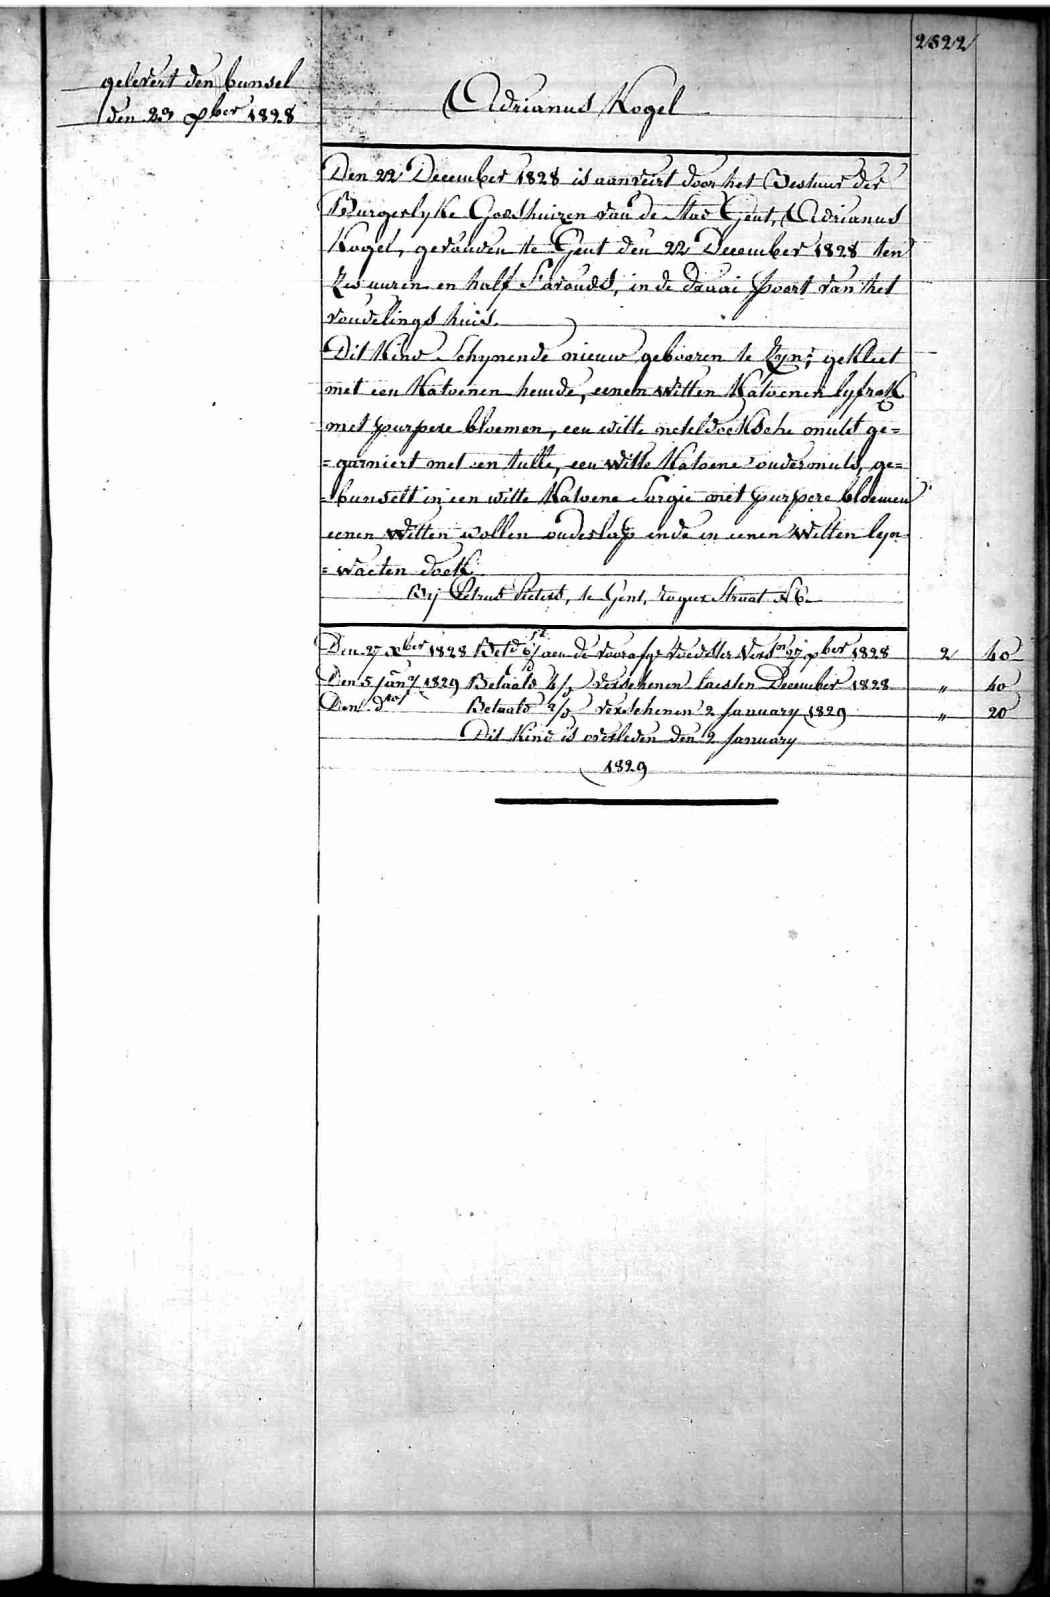 2822
gelevert den bunsel
den 23 xber 1828
Adrianus Kogel
Den 22 December 1828 is aanveirt door het Bestuur der
Burgerlyke Godshuizen van de Stad Gent, Adrianus
Kogel, gevonden te Gent den 22 December 1828 ten
zes uuren en half s'avonds, in de draai poort van het
vondelings huis.
Dit Kind Schynende nieuw gebooren te Zyn; gekleet
met een Katoenen hemde, eenen witten Katoenen lyfrok
met purpere bloemen, een witte neteldoeksche muts ge=
=garniert met een tulle, een witte Katoene ondermuts, ge=
=bunselt in een witte Katoene Sargie met purpere bloemen
eenen witten wollen onderslap ende in eenen witten lyn
=waeten doek
By Petrus Pieters, te Gent, Straat N 6
Den 27 xber 1828 Betd 6/ aen de voorafge voedster Versn 27 xber 1828 2 40
Den 5 Jany 1829 Betaald 4/d verschenen laesten December 1828 " 40
Den do Betaald 2/d verschenen 2 January 1829 " 20
Dit Kind is overleden den 2 January
1829